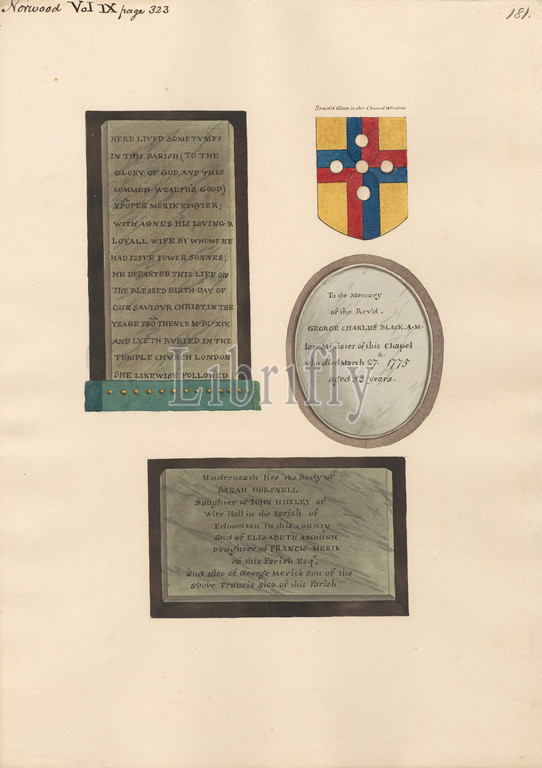 Norwood Vol IX page 323
181.
HERE LIVED SOMETYMES
IN THIS PARISH (TO THE
GLORY OF GOD, AND THIS
COMMON-WEALTH'S GOOD)
XPOFER MERIK ESQVIER;
WITH AGNES HIS LOVING &
LOYALL WIFE BY WHOME HE
HAD ISSVE FOWER SONNES;
HE DEPARTED THIS LIFE ON
THE BLESSED BIRTH-DAY OF
OUR SAVIOVR CHRIST, IN THE
YEARE FRO THENCE M·DC·XIV,
AND LYETH BVRIED IN THE
TEMPLE CHVRCH LONDON
SHE LIKEWISE FOLLOWED
Stain'd Glass in the Chancel Window
To the Memory
of the Revd.
GEORGE CHARLES BLACK, A.M.
late Minister of this Chapel
who died March 27th. 1775
aged 33 years.
Underneath lies the Body of
SARAH HORSNELL
Daughter of JOHN HUXLEY of
Wire Hall in the Parish of
Edmonton in this county
and of ELIZABETH ASCOUGH
Daughter of FRANCIS MERIK
of this Parish Esqr.
And also of George Merick Son of the
above Francis also of this Parish.
Librifly